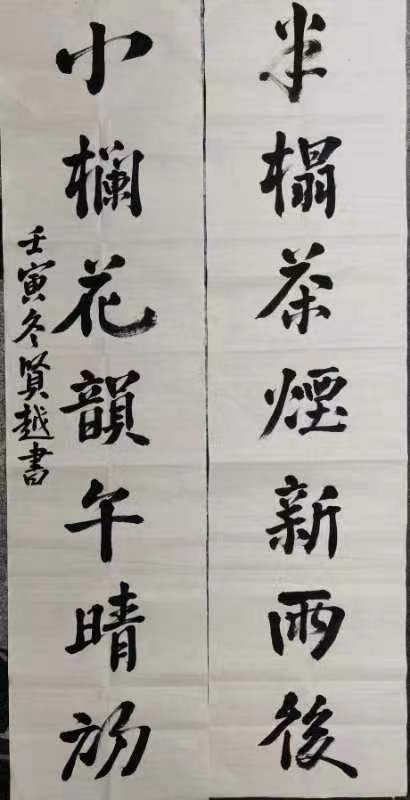 半榻茶煙新雨後
小欄花韻午晴初
壬寅冬賢越書